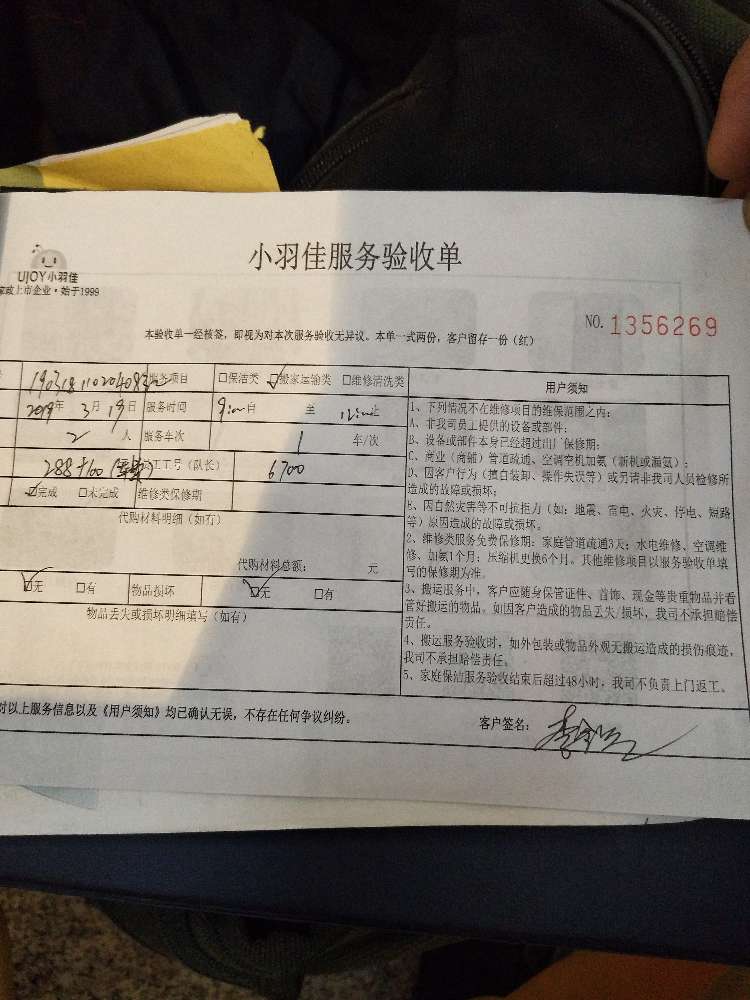 UJOY小羽佳
家政上市企业·始于1999
小羽佳服务验收单
NO. 1356269
本验收单一经核签，即视为对本次服务验收无异议。本单一式两份，客户留存一份（红）
服务项目 □保洁类 ☑搬家运输类 □维修清洗类
2019年 3月 19日 服务时间 9:00自 至 12:00止
2 人 服务车次 1 车/次
288+100 工工号（队长） 6700
☑完成 □未完成 维修类保修期
代购材料明细（如有）
代购材料总额： 元
☑无 □有 物品损坏 ☑无 □有
物品丢失或损坏明细填写（如有）
用户须知
1、下列情况不在维修项目的维保范围之内：
A、非我司员工提供的设备或部件；
B、设备或部件本身已经超过出厂保修期；
C、商业（商铺）管道疏通、空调空机加氨（新机或漏氨）；
D、因客户行为（擅自装卸、操作失误等）或另请非我司人员检修所
造成的故障或损坏；
E、因自然灾害等不可抗拒力（如：地震、雷电、火灾、停电、短路
等）原因造成的故障或损坏。
2、维修类服务免费保修期：家庭管道疏通3天；水电维修、空调维
修、加氨1个月；压缩机更换6个月。其他维修项目以服务验收单填
写的保修期为准。
3、搬运服务中，客户应随身保管证件、首饰、现金等贵重物品并看
管好搬运的物品。如因客户造成的物品丢失/损坏，我司不承担赔偿
责任。
4、搬运服务验收时，如外包装或物品外观无搬运造成的损伤痕迹，
我司不承担赔偿责任。
5、家庭保洁服务验收结束后超过48小时，我司不负责上门返工。
对以上服务信息以及《用户须知》均已确认无误，不存在任何争议纠纷。
客户签名：